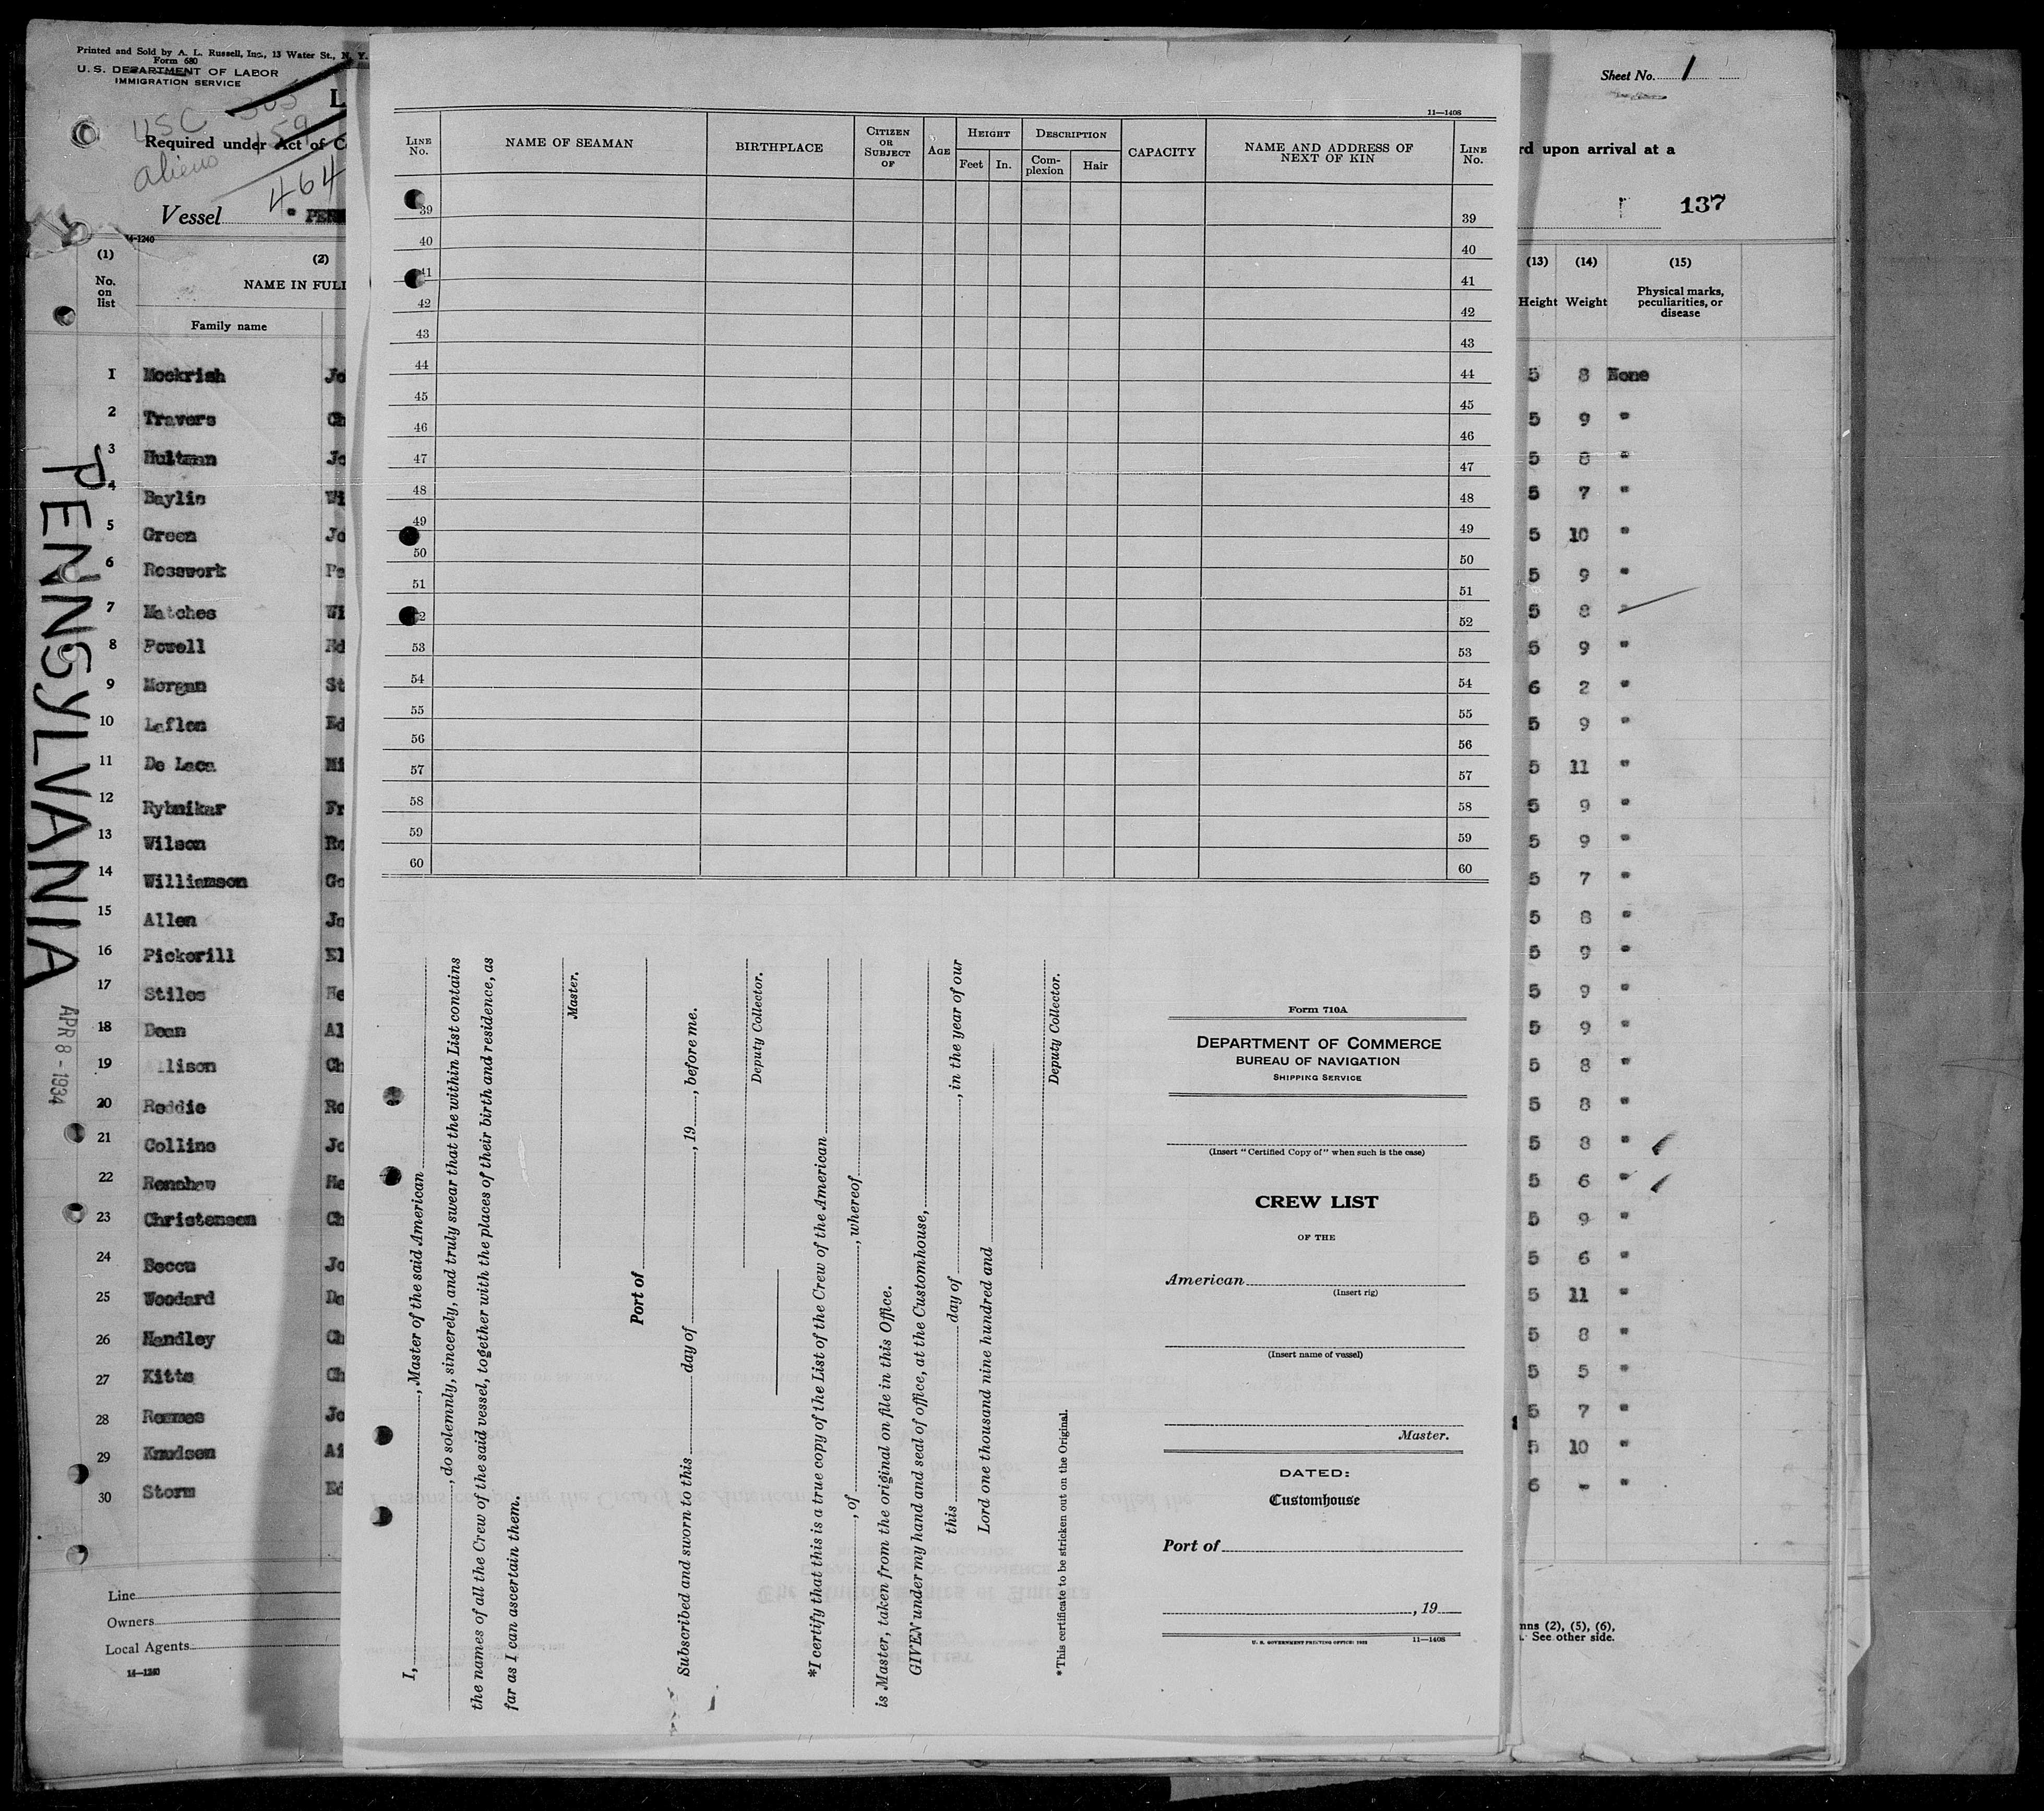 Printed and Sold by A. L. Russell, Inc., 13 Water St., N. Y.
Form 680
U.S. DEPARTMENT OF LABOR
IMMIGRATION SERVICE
L
USC 305
159
aliens
464
Required under Act of C
Vessel " PENN
14-1240
(1) (2)
No. on list
NAME IN FULL
Family name
1 Mockrish Jo
2 Travers Ch
3 Hultman Jo
4 Baylis Wi
5 Green Jo
6 Rosswork Pe
7 Matches Wi
8 Powell Ed
9 Morgan St
10 Laflen Ed
11 De Laca Mi
12 Rybnikar Fr
13 Wilson Ro
14 Williamson Go
15 Allen Ja
16 Pickerill El
17 Stiles He
18 Dean Al
19 llison Ch
20 Reddie Ro
21 Collins Jo
22 Renshaw He
23 Christensen Ch
24 Beccu Jo
25 Woodard Da
26 Handley Ch
27 Kitts Ch
28 Reemes Jo
29 Knudsen Ai
30 Storm Ed
Line
Owners
Local Agents
14-1240
PENNSYLVANIA
APR 8 - 1934
11-1408
LINE No.
NAME OF SEAMAN
BIRTHPLACE
CITIZEN OR SUBJECT OF
AGE
HEIGHT
Feet In.
DESCRIPTION
Complexion Hair
CAPACITY
NAME AND ADDRESS OF NEXT OF KIN
LINE No.
39 39
40 40
41 41
42 42
43 43
44 44
45 45
46 46
47 47
48 48
49 49
50 50
51 51
2 52
53 53
54 54
55 55
56 56
57 57
58 58
59 59
60 60
I, , Master of the said American
, do solemnly, sincerely, and truly swear that the within List contains
the names of all the Crew of the said vessel, together with the places of their birth and residence, as
far as I can ascertain them.
Master.
Port of
Subscribed and sworn to this day of , 19 , before me.
Deputy Collector.
*I certify that this is a true copy of the List of the Crew of the American
, of , whereof
is Master, taken from the original on file in this Office.
GIVEN under my hand and seal of office, at the Customhouse,
this day of , in the year of our
Lord one thousand nine hundred and
Deputy Collector.
*This certificate to be stricken out on the Original.
Form 710A
DEPARTMENT OF COMMERCE
BUREAU OF NAVIGATION
SHIPPING SERVICE
(Insert "Certified Copy of" when such is the case)
CREW LIST
OF THE
American
(Insert rig)
(Insert name of vessel)
Master.
DATED:
Customhouse
Port of
, 19
U. S. GOVERNMENT PRINTING OFFICE: 1932 11-1408
Sheet No. 1
rd upon arrival at a
137
(13) (14) (15)
Height Weight Physical marks, peculiarities, or disease
5 8 None
5 9 "
5 8 "
5 7 "
5 10 "
5 9 "
5 8 "
5 9 "
6 2 "
5 9 "
5 11 "
5 9 "
5 9 "
5 7 "
5 8 "
5 9 "
5 9 "
5 9 "
5 8 "
5 8 "
5 8 "
5 6 "
5 9 "
5 6 "
5 11 "
5 8 "
5 5 "
5 7 "
5 10 "
6 - "
nns (2), (5), (6),
. See other side.